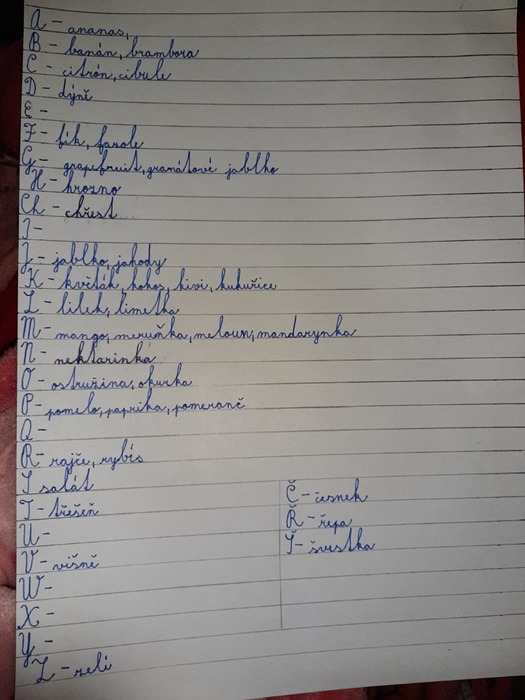 A - ananas,
B - banán, brambora
C - citrón, cibule
D - dýně
E -
F - fík, fazole
G - grapefruit, granátové jablko
H - hrozno
Ch - chřest
I -
J - jablko, jahody
K - květák, kokos, kivi, kukuřice
L - lilek, limetka
M - mango, meruňka, meloun, mandarynka
N - nektarinka
O - ostružina, okurka
P - pomelo, paprika, pomeranč
Q -
R - rajče, rybís
S salát
T - třešeň
U -
V - višně
W -
X -
Y -
Z - zelí
Č - česnek
Ř - řepa
Š - švestka